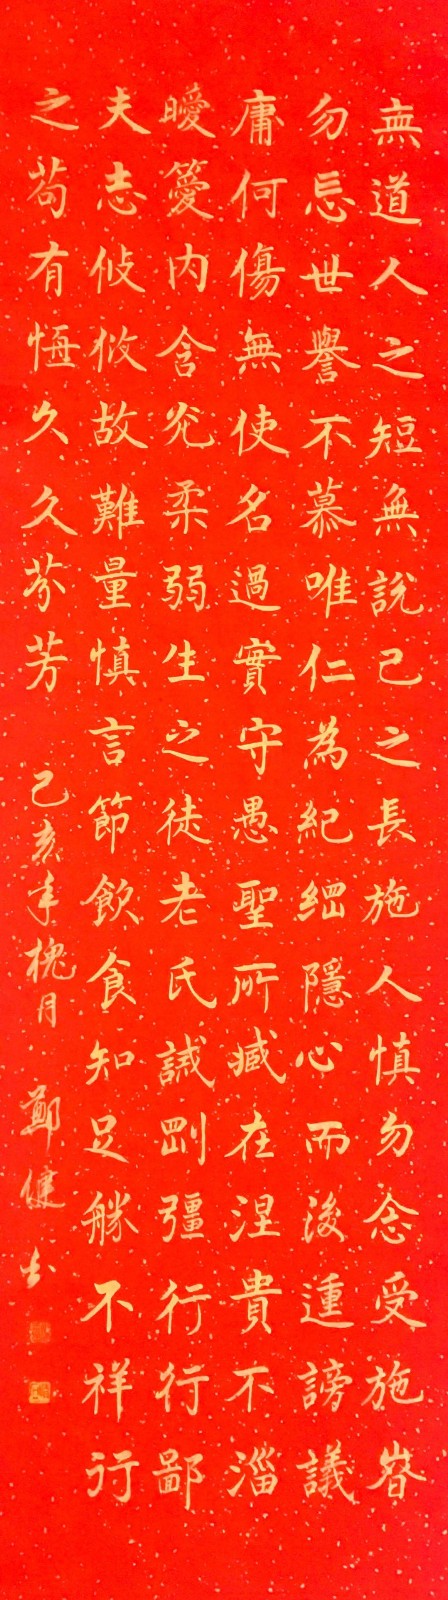 無道人之短無說己之長施人慎勿念受施昚
勿忘世譽不慕唯仁為紀綱隱心而後動謗議
庸何傷無使名過實守愚聖所臧在涅貴不淄
曖曖內含光柔弱生之徒老氏誡剛彊行行鄙
夫志攸攸故難量慎言節飲食知足勝不祥行
之苟有恆久久芬芳
己亥年槐月 鄭健